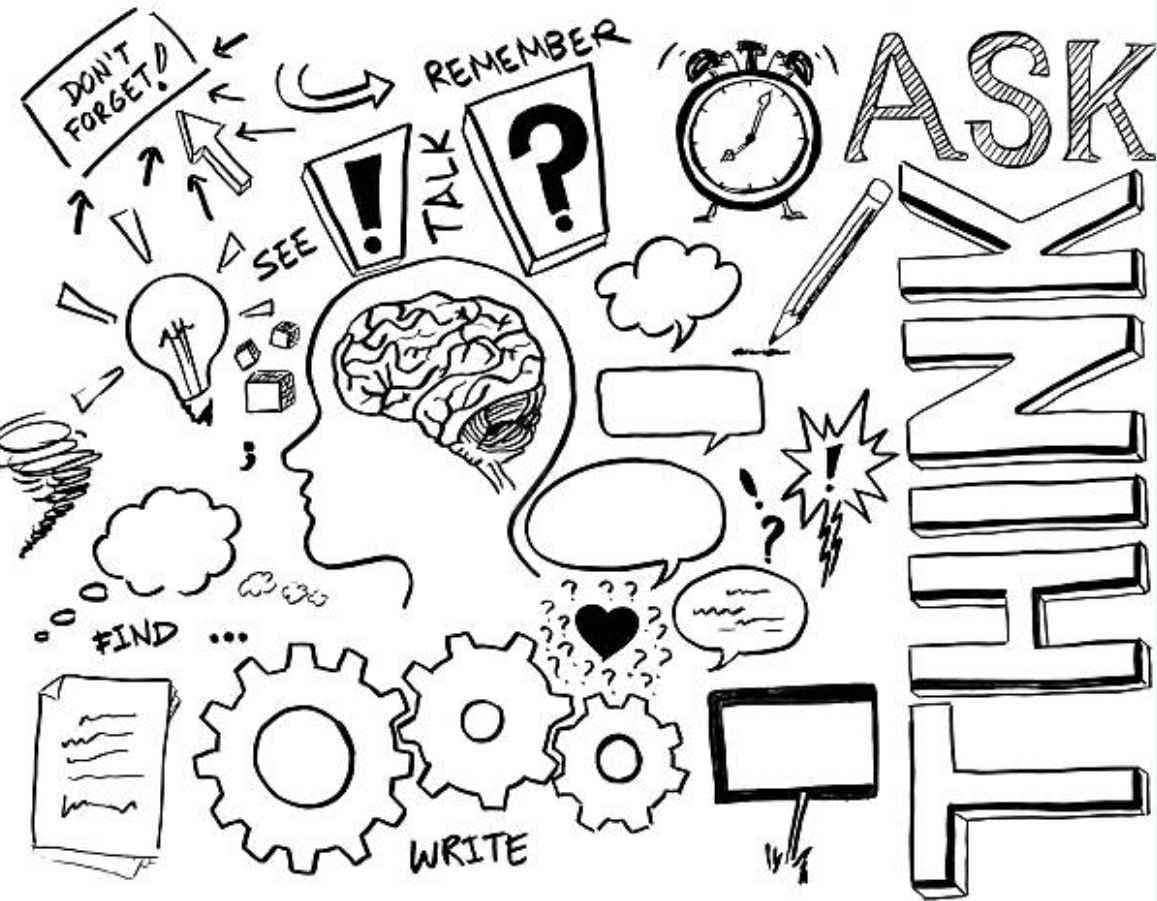 DON'T
FORGET!
REMEMBER
ASK
!
TALK
?
SEE
THINK
;
!
!
?
FIND ...
? ? ? ? ? ? ? ? ? ? ? ? ? ? ? ? ? ? ? ? ?
WRITE